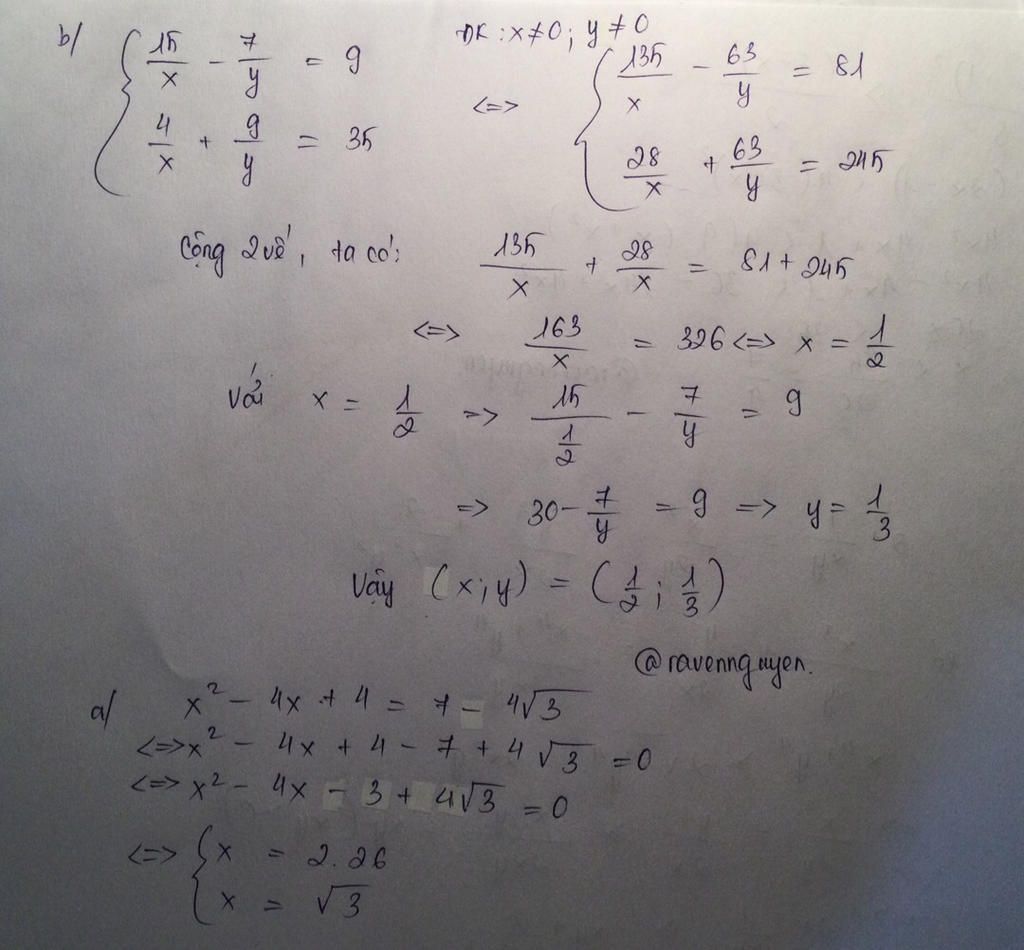 b/ { 15/x - 7/y = 9
4/x + 9/y = 35
ĐK: x≠0; y≠0
<=> { 135/x - 63/y = 81
28/x + 63/y = 245
Cộng 2 vế, ta có: 135/x + 28/x = 81 + 245
<=> 163/x = 326 <=> x = 1/2
Với x = 1/2 => 15/(1/2) - 7/y = 9
=> 30 - 7/y = 9 => y = 1/3
Vậy (x;y) = (1/2; 1/3)
@ravennguyen.
a/ x² - 4x + 4 = 7 - 4√3
<=> x² - 4x + 4 - 7 + 4√3 = 0
<=> x² - 4x - 3 + 4√3 = 0
<=> { x = 2.26
x = √3